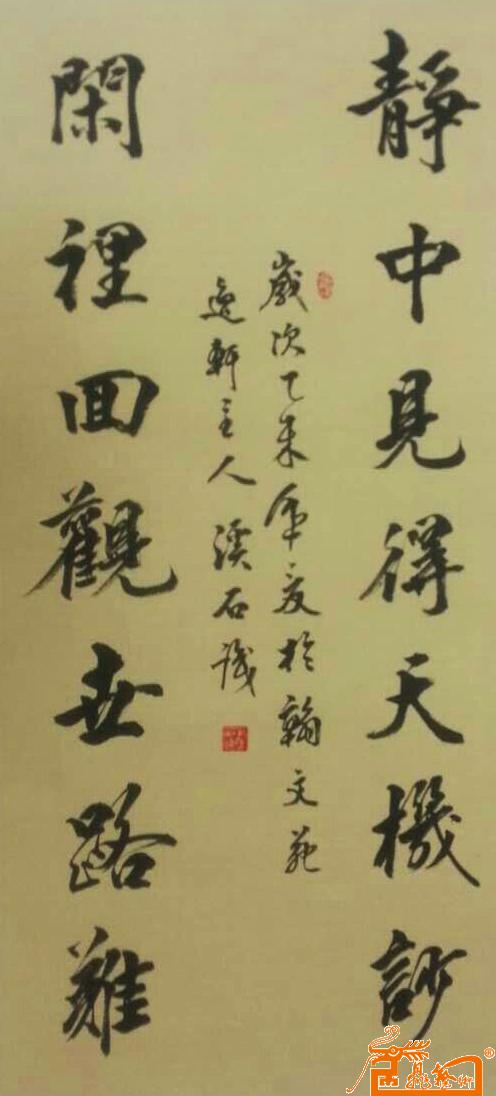 靜中見得天機訬
歲次乙未年夏於翰文苑
逸軒主人溪石識
閑裡回觀世路難